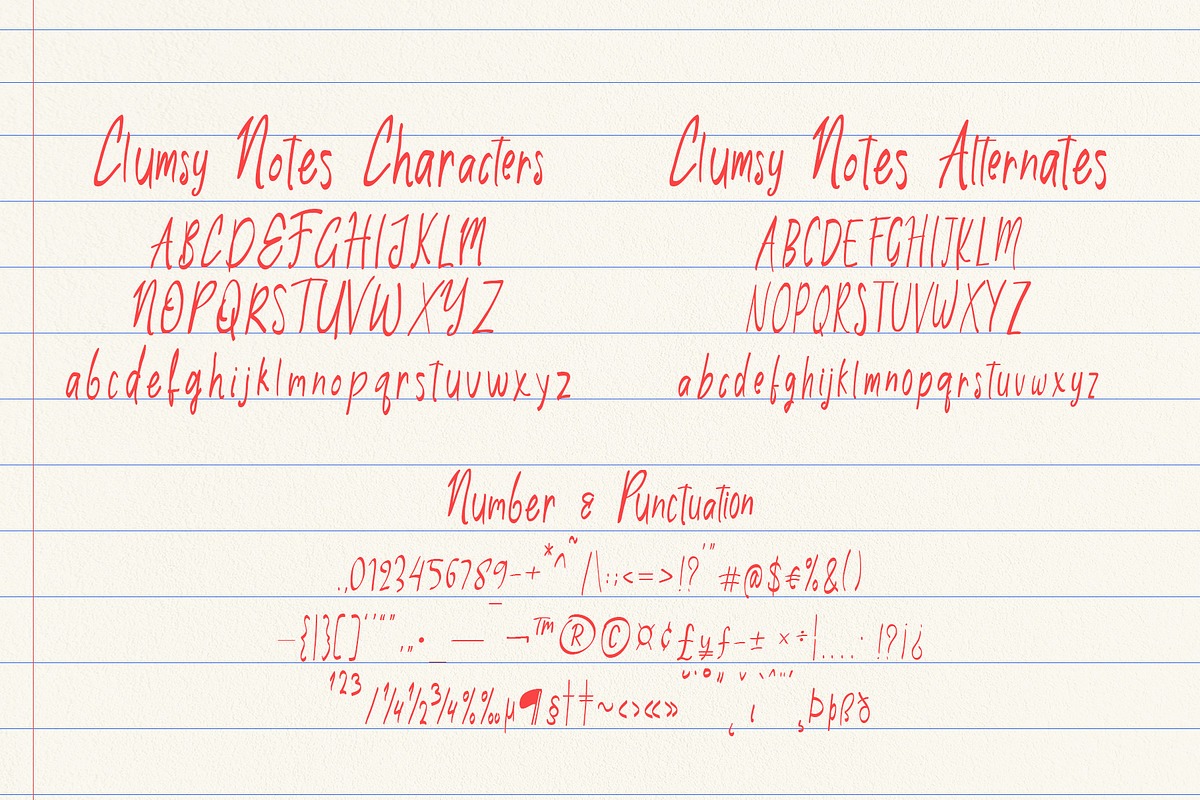 Clumsy Notes Characters
ABCDEFGHIJKLM
NOPQRSTUVWXYZ
abcdefghijklmnopqrstuvwxyz
Clumsy Notes Alternates
ABCDEFGHIJKLM
NOPQRSTUVWXYZ
abcdefghijklmnopqrstuvwxyz
Number & Punctuation
.,0123456789-+*^~/\:;<=>!?'"#@$€%&()
–{|}[]‘’“”‚„•_—¯¬™®©¤¢£¥ƒ-±×÷¦…·!?¡¿
¹²³/¼½¾%‰µ¶§†‡~‹›«»˘˙°˝ˇ`^¨¸ÞþßŠ